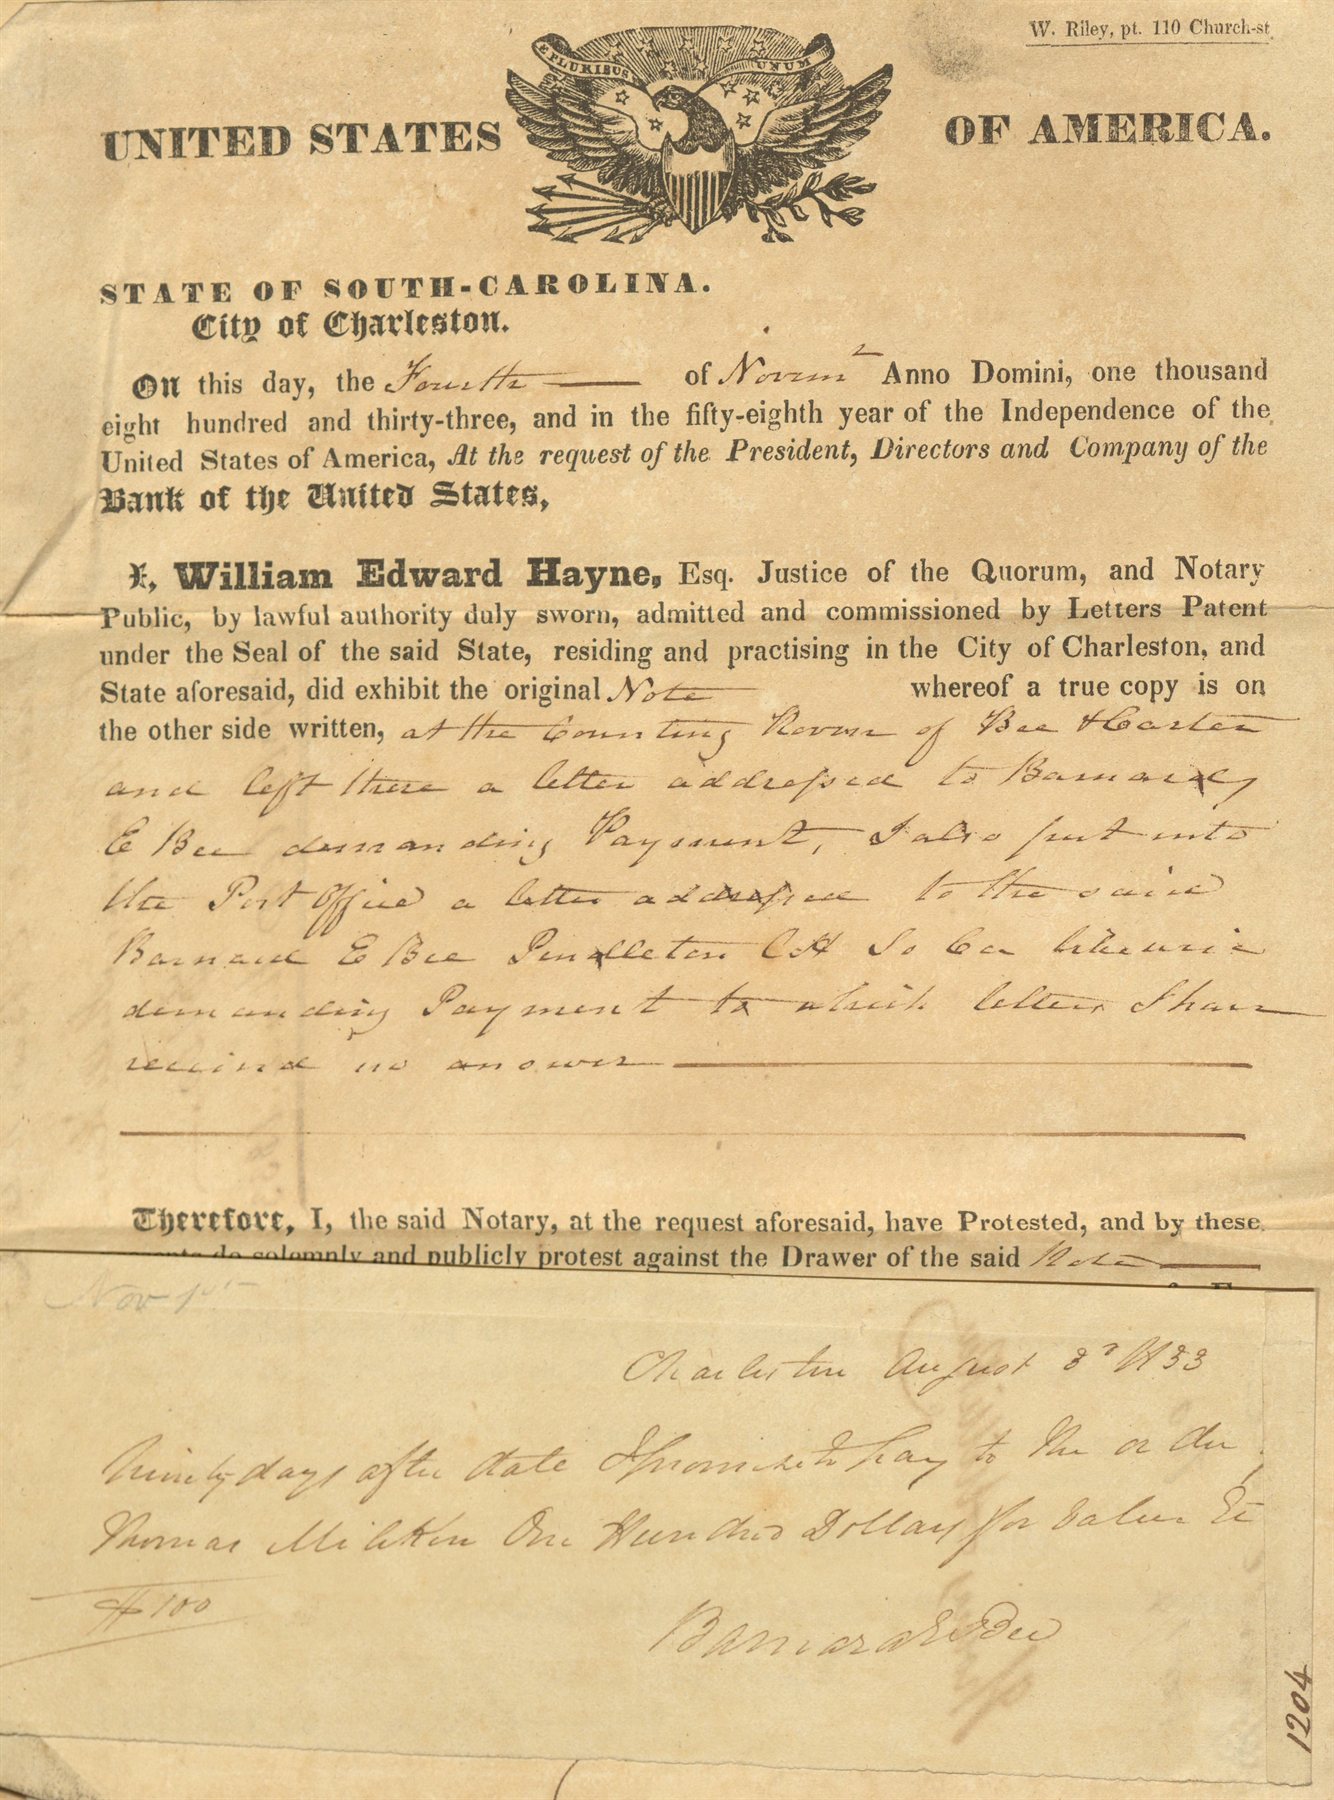 W. Riley, pt. 110 Church-st
E PLURIBUS UNUM
UNITED STATES OF AMERICA.
STATE OF SOUTH-CAROLINA.
City of Charleston.
On this day, the Fourth of Novem r Anno Domini, one thousand
eight hundred and thirty-three, and in the fifty-eighth year of the Independence of the
United States of America, At the request of the President, Directors and Company of the
Bank of the United States,
I, William Edward Hayne, Esq. Justice of the Quorum, and Notary
Public, by lawful authority duly sworn, admitted and commissioned by Letters Patent
under the Seal of the said State, residing and practising in the City of Charleston, and
State aforesaid, did exhibit the original Note whereof a true copy is on
the other side written, at the Counting Room of Bee & Carter
and left there a letter addressed to Barnard
E Bee demanding Payment, I also put into
the Post Office a letter addressed to the said
Barnard E Bee Pendleton CH So Ca likewise
demanding Payment to which letters I have
received no answer
Therefore, I, the said Notary, at the request aforesaid, have Protested, and by these
do solemnly and publicly protest against the Drawer of the said Note
Nov 1st
Charleston August 3d 1833
Ninety days after date I promise to pay to the order
Thomas Milliken One Hundred Dollars for value
$100
Barnard E Bee
1204